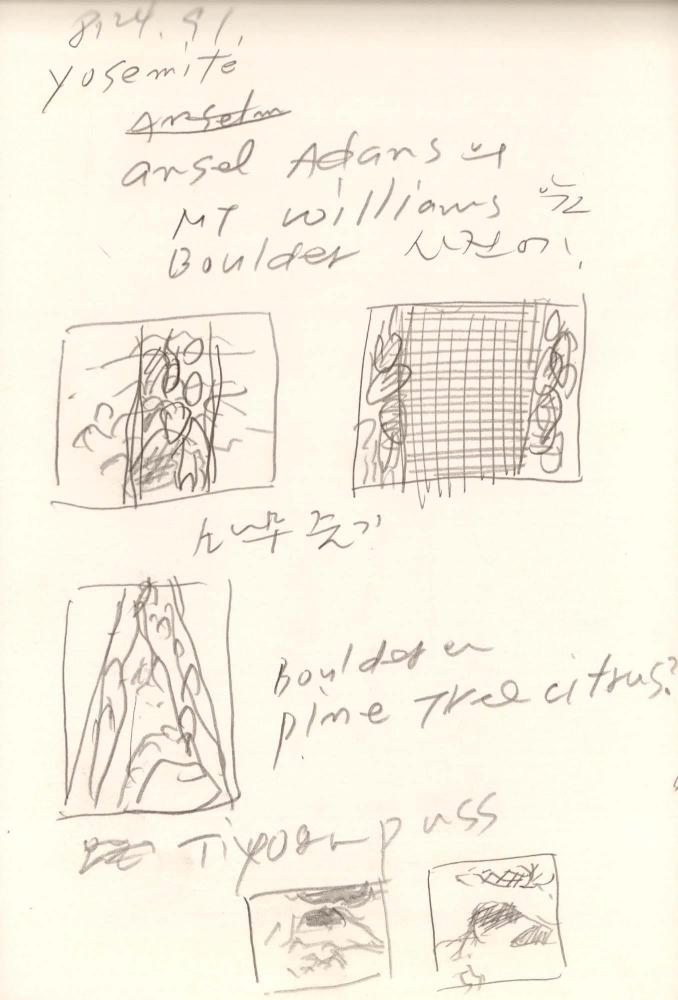 8.24.91.
Yosemite
Anselm
ansel Adans의
MT williams 와
Boulder 사진에.
소나무 줄기
Boulder
pine Tree citrus?
Tiyoga puss